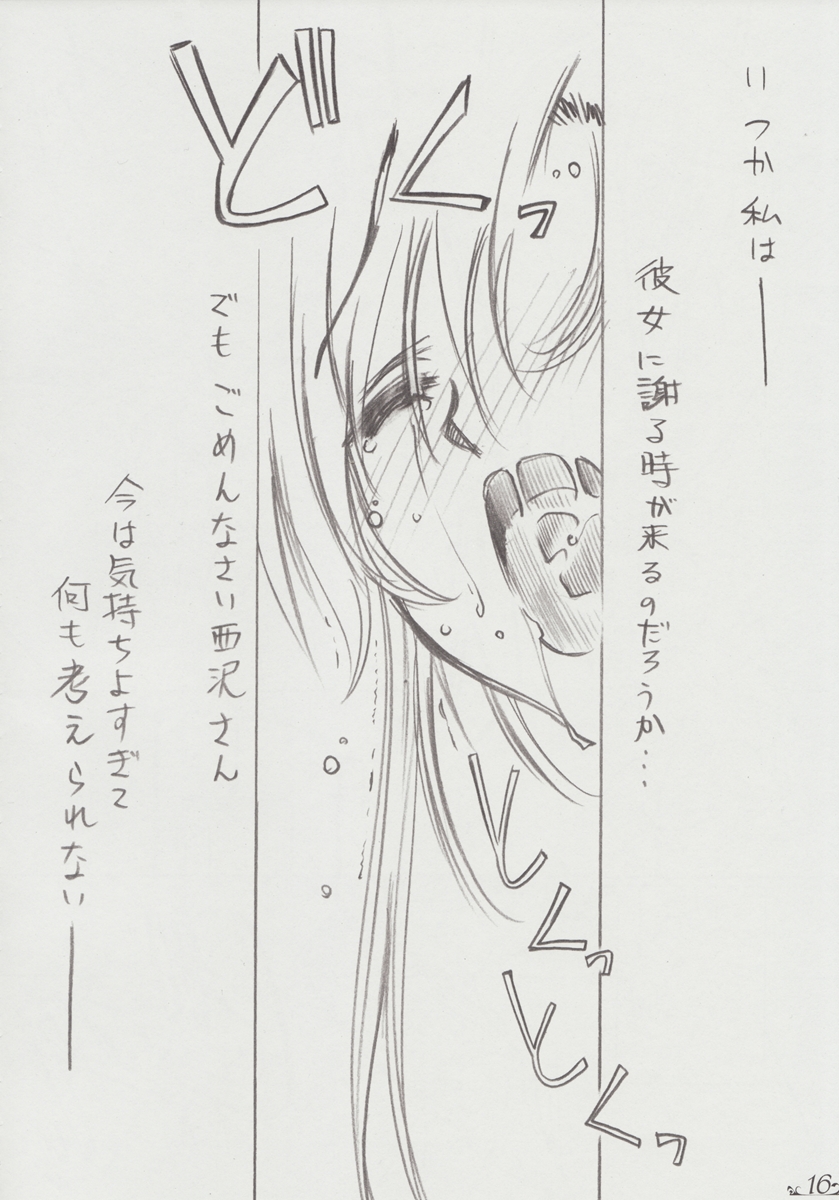 いつか私は──
彼女に謝る時が来るのだろうか…
どくっ
でもごめんなさい西沢さん
今は気持ちよすぎて
何も考えられない──
とくっ
とくっ
16